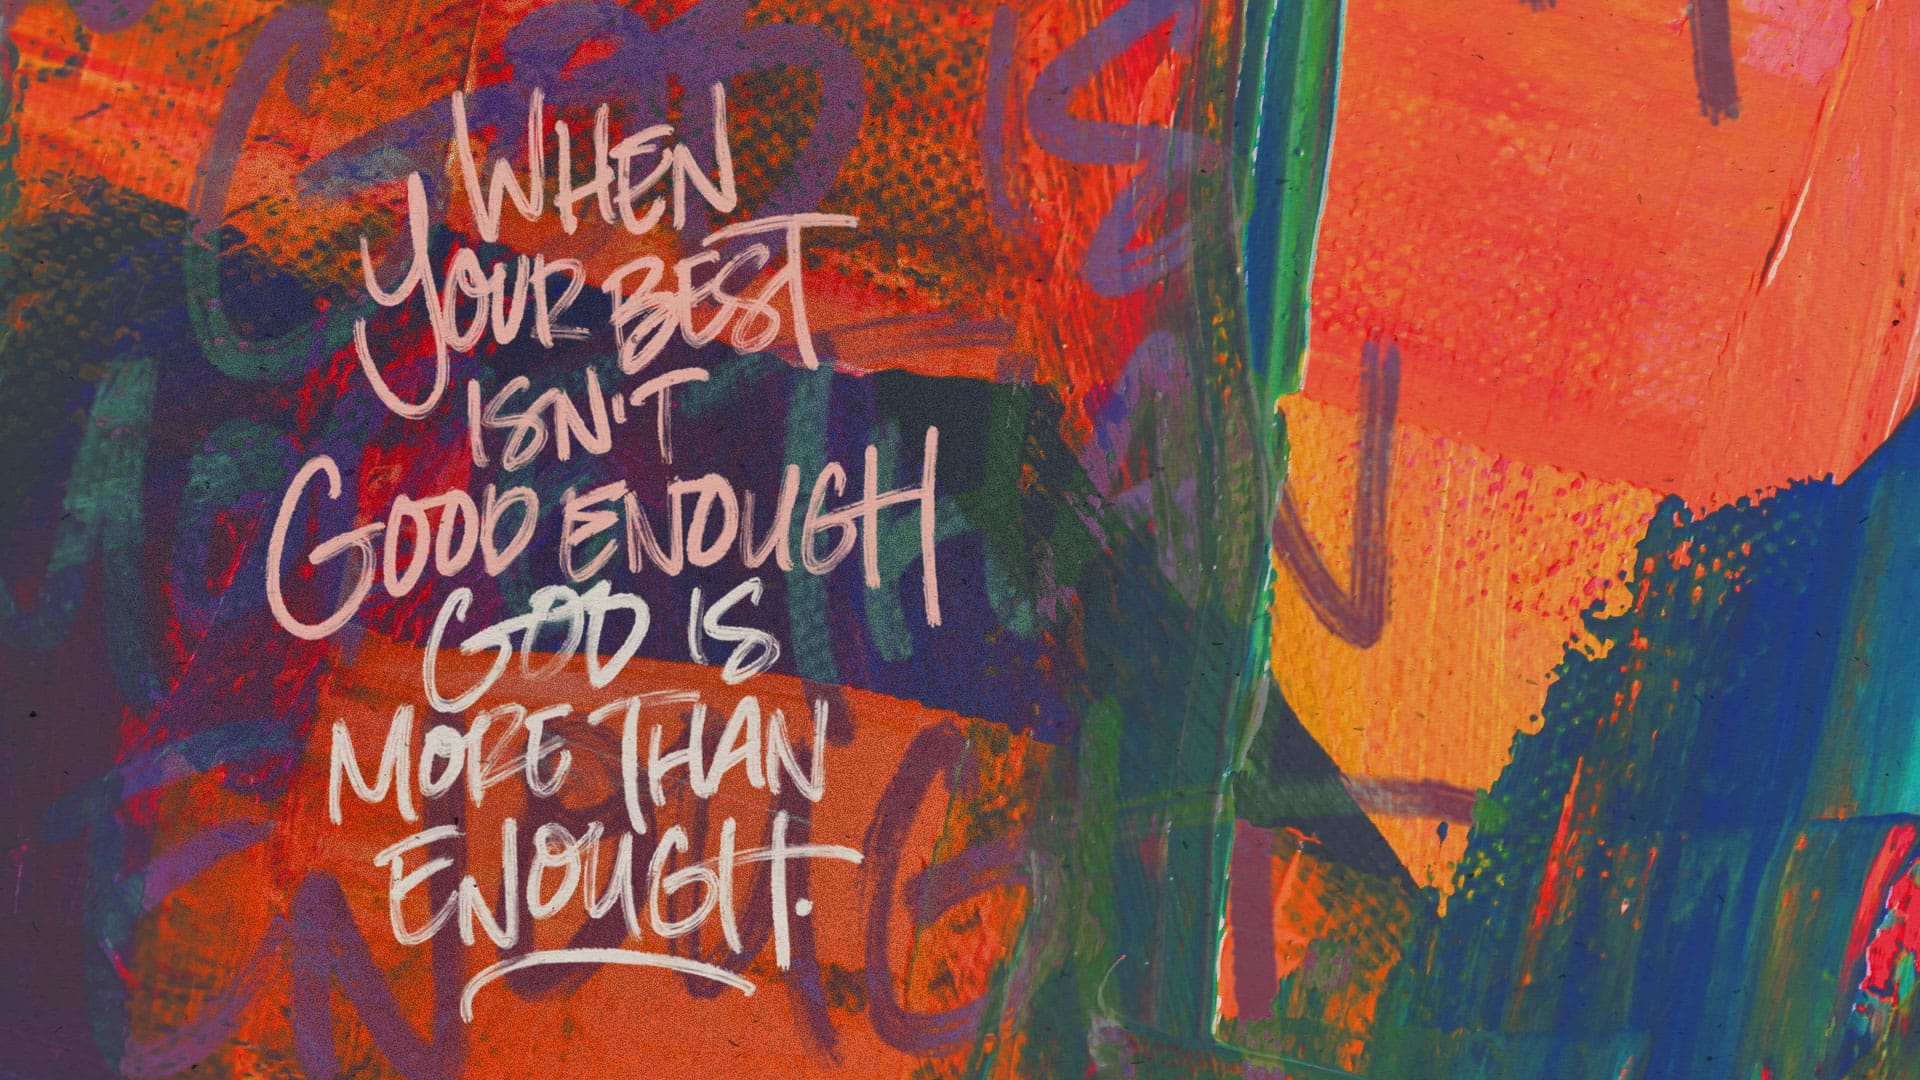 WHEN
YOUR BEST
ISN'T
GOOD ENOUGH
GOD IS
MORE THAN
ENOUGH.